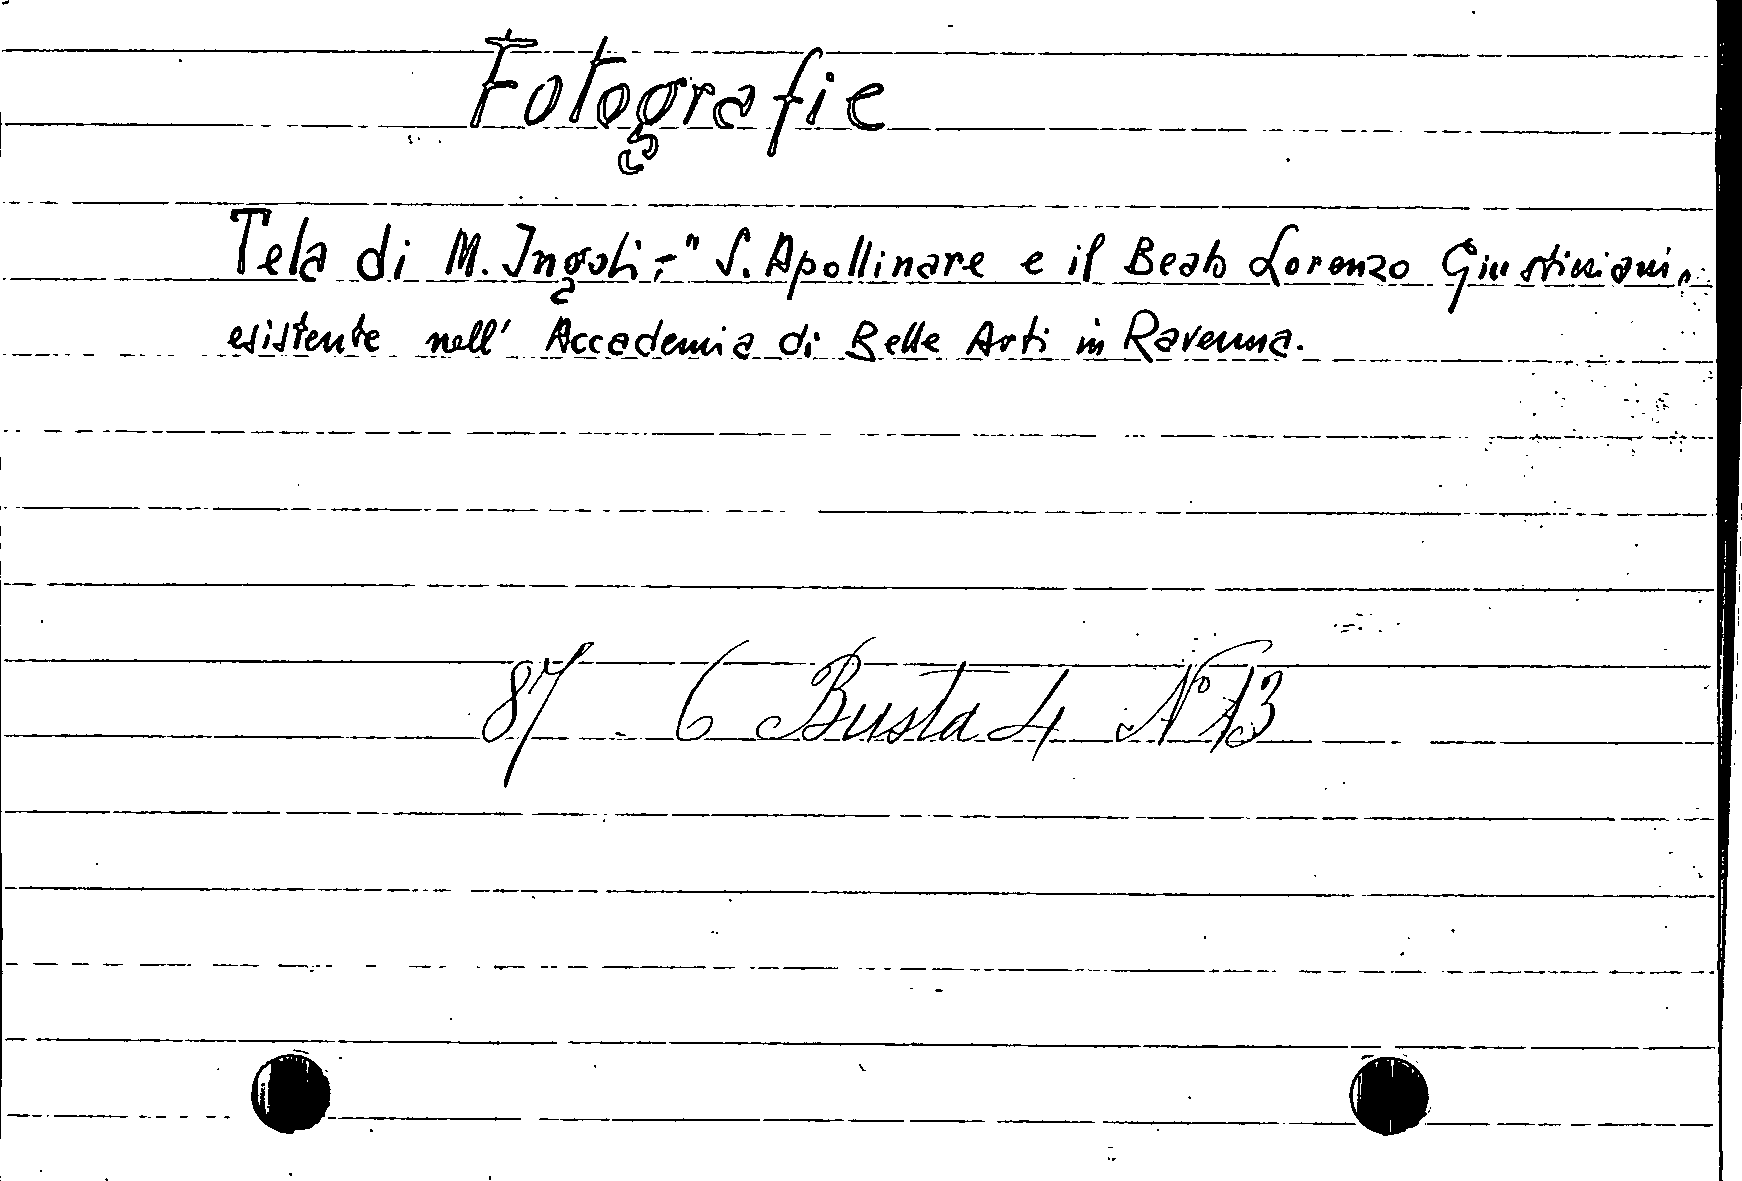 Fotografie
Tela di M. Ingoli - "S. Apollinare e il Beato Lorenzo Giustiniani"
esistente nell' Accademia di Belle Arti in Ravenna.
87 - 6 Busta 4 N° 13